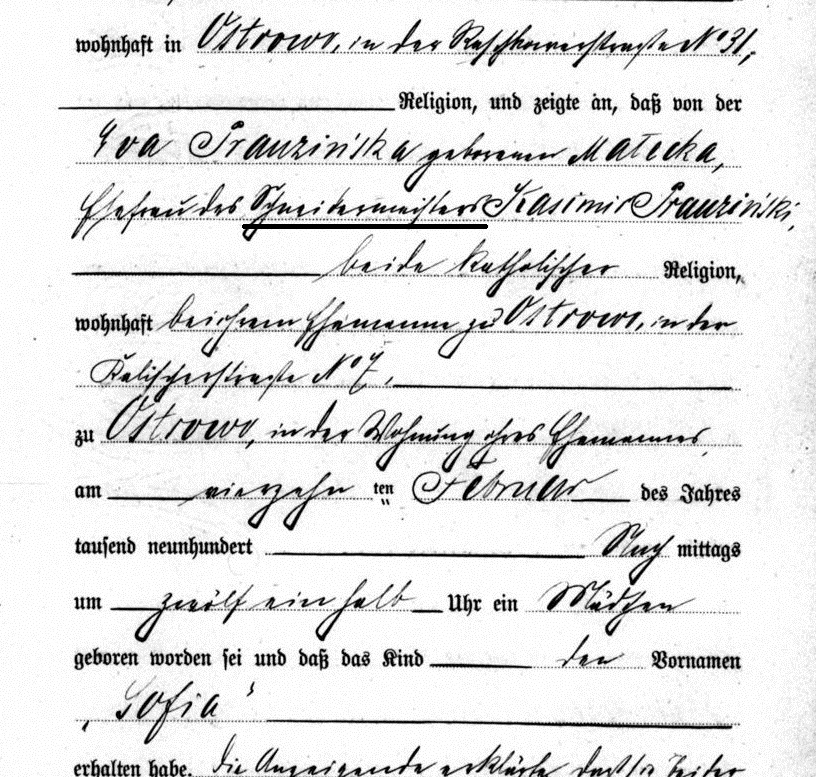 wohnhaft in Ostrowo, in der Raschkowerstraße No 31,
Religion, und zeigte an, daß von der
Eva Franzińska geborenen Małecka,
Ehefrau des Schneidermeisters Kasimir Franziński,
beide katholischer Religion,
wohnhaft bei ihrem Ehemanne zu Ostrowo, in der
Kalischerstraße No 7,
zu Ostrowo, in der Wohnung ihres Ehemannes,
am vierzehn ten Februar des Jahres
tausend neunhundert Nach mittags
um zwölf ein halb Uhr ein Mädchen
geboren worden sei und daß das Kind den Vornamen
„Sofia"
erhalten habe. Die Anzeigende erklärte, daß sie